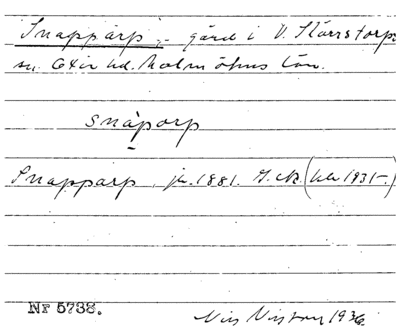 Snapparp, gård i V. Kärrstorps
sn. Oxie hd. Malmöhus län.
snáporp
Snapparp, jb. 1881. G.ck. (hb 1935.)
Nr 5738.
Nils 1936.